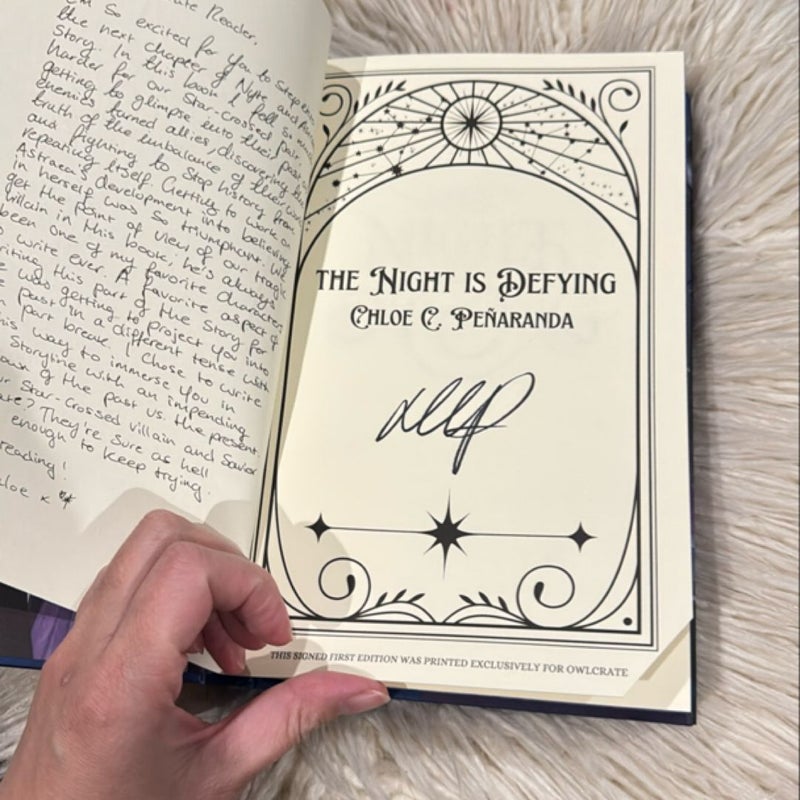 ate Reader,
I'm so excited for you to step into
the next chapter of Nyte and
Story. In this book I fell so much
harder for our Star-crossed pair
getting to glimpse into their past as
enemies turned allies, discovering the
truth of the imbalance of their world
and fighting to stop history from
repeating itself. Getting to work on
Astraea's development into believing
in herself was so triumphant. We
get the point of view of our tragic
villain in this book; he's always
been one of my favorite characters
write ever. A favorite aspect of
riting this part of the story for
was getting to project you into
past in a different tense with
part break. I chose to write
his way to immerse you in
Storyline with an impending
of the past vs. the present.
Star-crossed villain and Savior
They're sure as hell
enough to keep trying.
reading!
loe x
THE NIGHT IS DEFYING
CHLOE C. PEÑARANDA
THIS SIGNED FIRST EDITION WAS PRINTED EXCLUSIVELY FOR OWLCRATE